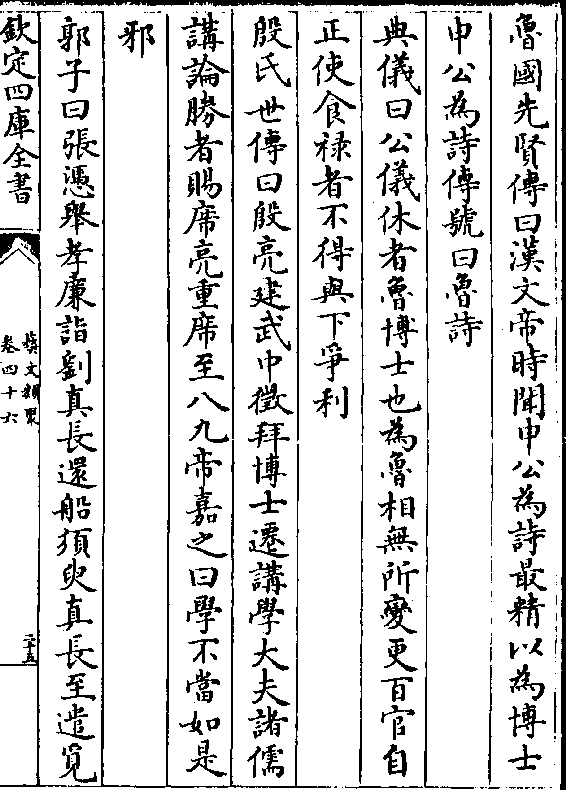 魯國先賢傳曰漢文帝時聞申公為詩最精以為博士
申公為詩傳號曰魯詩
典儀曰公儀休者魯博士也為魯相無所變更百官自
正使食禄者不得與下爭利
殷氏世傳曰殷亮建武中徵拜博士遷講學大夫諸儒
講論勝者賜席亮重席至八九帝嘉之曰學不當如是
邪
郭子曰張憑舉孝廉詣劉真長還船須臾真長至遣覓
欽定四庫全書
藝文類聚
卷四十六
二十五